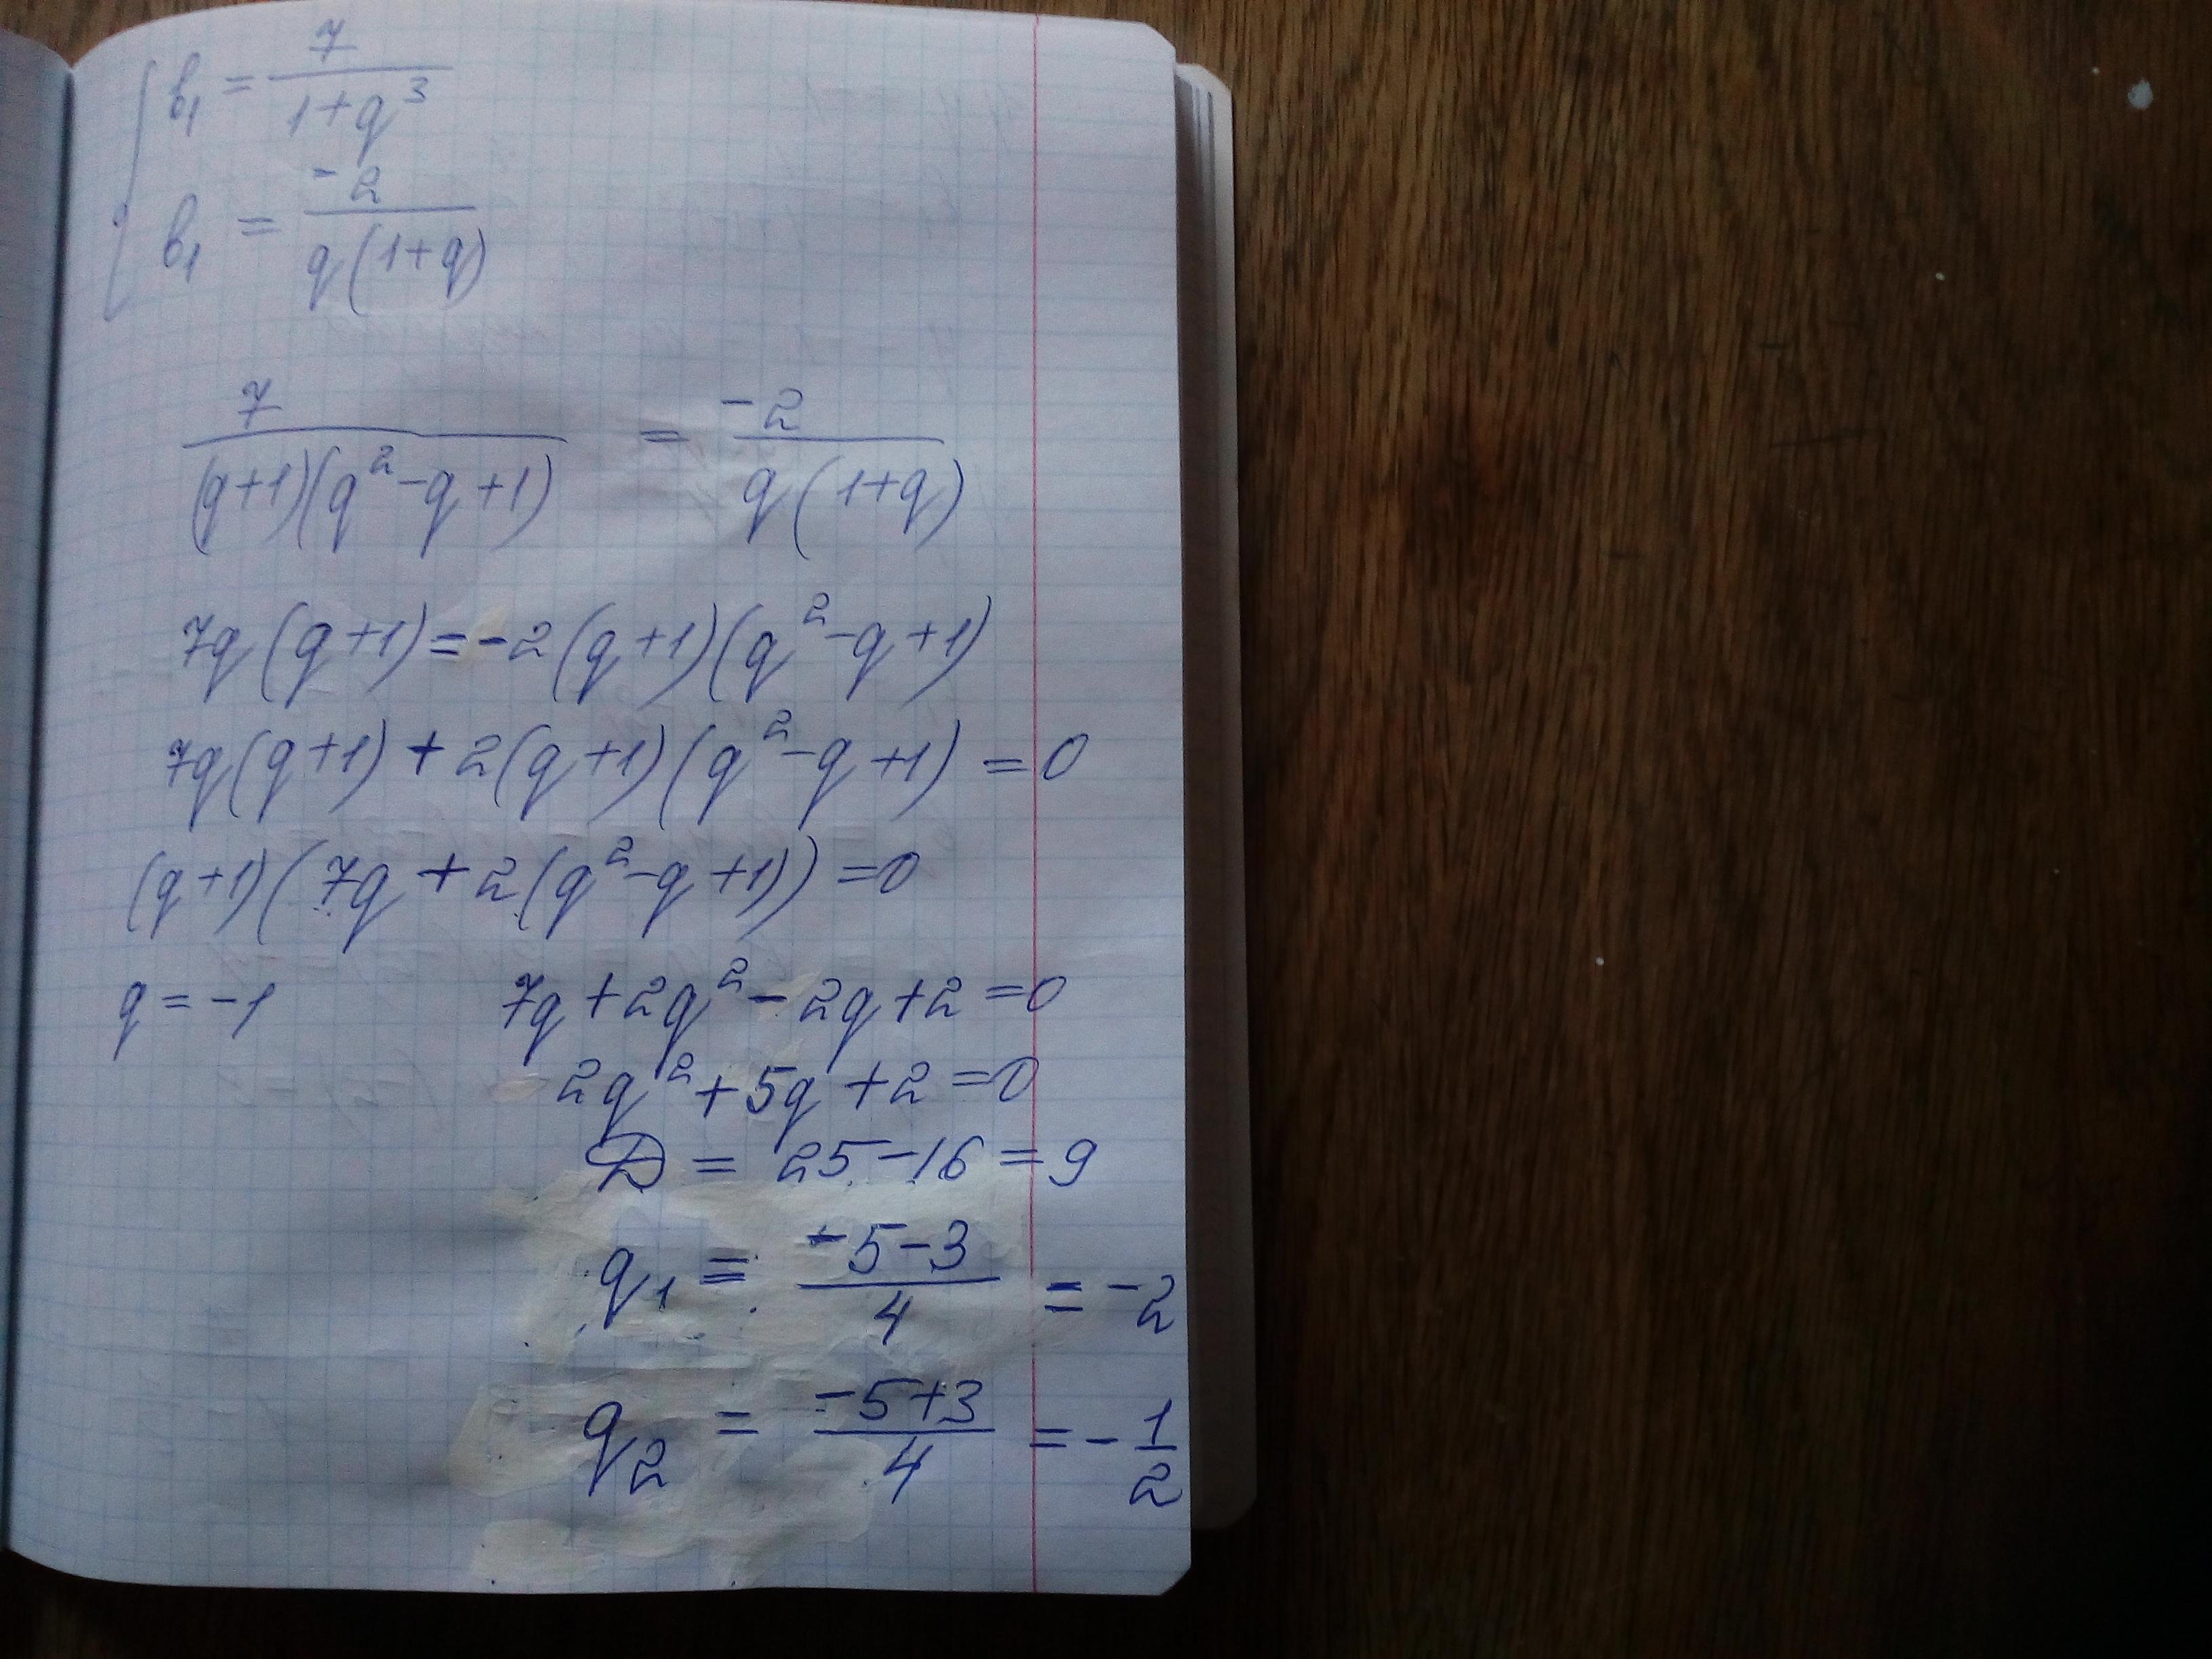 b₁ = 7 / (1+q³)
b₁ = -2 / (q(1+q))
7 / ((q+1)(q²-q+1)) = -2 / (q(1+q))
7q(q+1)=-2(q+1)(q²-q+1)
7q(q+1)+2(q+1)(q²-q+1)=0
(q+1)(7q+2(q²-q+1))=0
q=-1 7q+2q²-2q+2=0
2q²+5q+2=0
D = 25-16=9
q₁ = (-5-3) / 4 = -2
q₂ = (-5+3) / 4 = -1/2